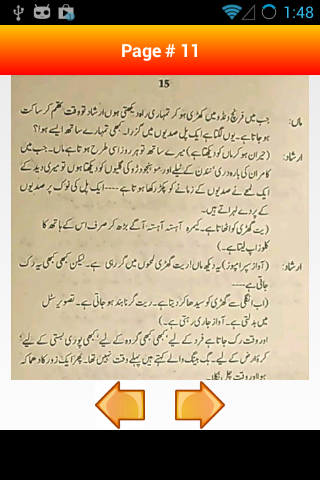 1:48
Page # 11
15
ماں: جب میں فرنچ ونڈو میں کھڑی ہو کر تمہاری راہ دیکھتی ہوں ارشاد تو وقت تھم کر ساکت
ہو جاتا ہے۔ یوں لگتا ہے ایک پل صدیوں میں گزرا۔ کبھی تمہارے ساتھ ایسے ہوا؟
ارشاد: (حیران ہو کر ماں کو دیکھتا ہے) میرے ساتھ تو ہر روز اسی طرح ہوتا ہے ماں۔ جب میں
کامران کی بارہ دری، لندن کے ٹیلے اور موہنجودڑو کی گلیوں کو دیکھتا ہوں تو میری دید کے
ایک لمحے نے صدیوں کے زمانے کو پکڑ رکھا ہوتا ہے ---- ایک پل کی نوک پر صدیوں
کے پردے لہراتے ہیں۔
(ریت گھڑی کو اٹھاتا ہے۔ کیمرہ آہستہ آہستہ آگے بڑھ کر صرف اس کے ہاتھ کا
کلوز اپ لیتا ہے۔)
ارشاد: (آواز سپر امپوز) یہ دیکھ ماں! ریت گھڑی لمحوں میں گر رہی ہے۔ لیکن کبھی کبھی یہ رک
جاتی ہے ----
(اب انگلی سے گھڑی کو سیدھا کر دیتا ہے۔ ریت گرنا بند ہو جاتی ہے۔ تصویر سٹل
میں بدلتی ہے۔ آواز جاری رہتی ہے۔)
اور وقت رک جاتا ہے فرد کے لیے‘ کبھی گروہ کے لیے‘ کبھی پوری بستی کے لیے‘
کرۂ ارض کے لیے۔ بگ بینگ والے کہتے ہیں پہلے وقت نہیں تھا۔ پھر ایک زور کا دھماکہ
ہوا اور وقت چل نکلا۔